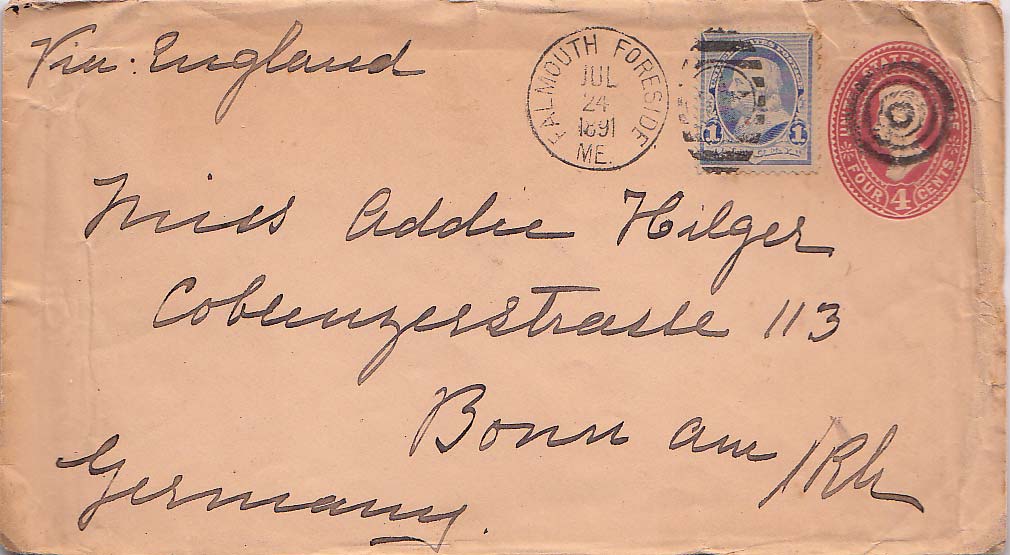 Via. England
FALMOUTH FORESIDE
JUL
24
1891
ME.
1 1
UNITED STATES POSTAGE
FOUR 4 CENTS
Miss Addie Hilger
Coblenzerstrasse 113
Bonn am /Rh
Germany.